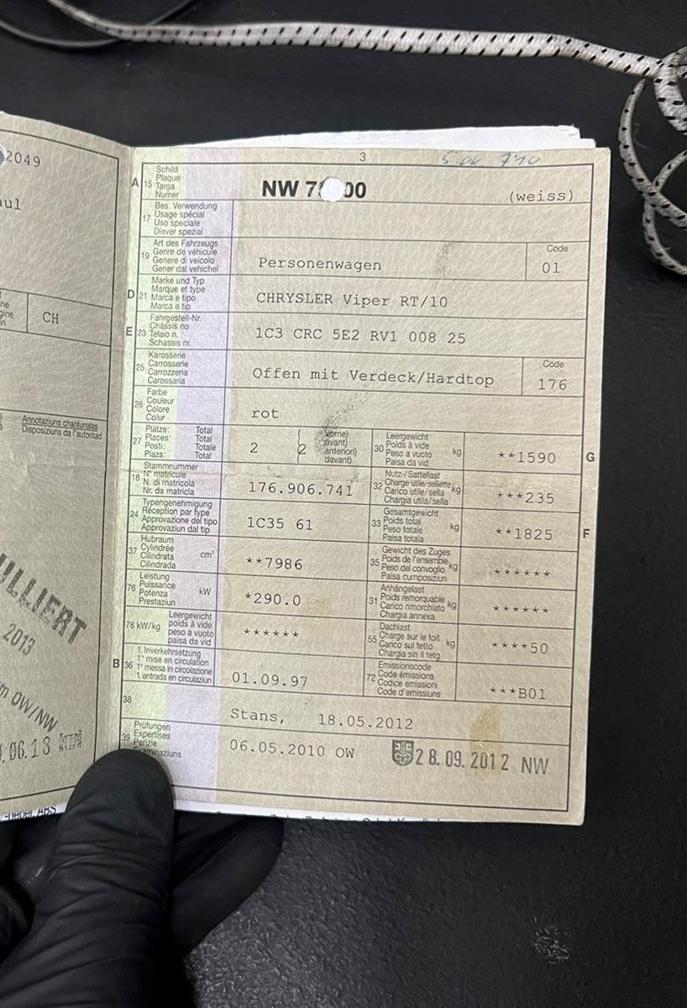 2049
aul
CH
Annotaziuns chantunalas
Disposiziuns da l'autoritad
ULLIERT
2013
m OW/NW
.06.13
3
A 15 Schild
Plaque
Targa
Numer
NW 7 00 (weiss)
17 Bes. Verwendung
Usage spécial
Uso speciale
Diever spezial
19 Art des Fahrzeugs
Genre de véhicule
Genere di veicolo
Gener dal vehichel
Personenwagen
Code
01
D 21 Marke und Typ
Marque et type
Marca e tipo
Marca e tip
CHRYSLER Viper RT/10
E 23 Fahrgestell-Nr.
Châssis no
Telaio n.
Schassis nr.
1C3 CRC 5E2 RV1 008 25
25 Karosserie
Carrosserie
Carrozzeria
Carossaria
Offen mit Verdeck/Hardtop
Code
176
26 Farbe
Couleur
Colore
Colur
rot
27 Plätze: Total
Places: Total
Posti: Totale
Plazs: Total
2 2 vorne)
avant)
anteriori)
davant)
30 Leergewicht
Poids à vide
Peso a vuoto
Paisa da vid
kg
**1590 G
18 Stammnummer
N° matricule
N. di matricola
Nr. da matricla
176.906.741
32 Nutz-/Sattellast
Charge utile/sellette
Carico utile/sella
Chargia utila/sella
kg
***235
24 Typengenehmigung
Réception par type
Approvazione del tipo
Approvaziun dal tip
1C35 61
33 Gesamtgewicht
Poids total
Peso totale
Paisa totala
kg
**1825 F
37 Hubraum
Cylindrée
Cilindrata
Cilindrada
cm³
**7986
35 Gewicht des Zuges
Poids de l'ensemble
Peso del convoglio
Paisa cumposiziun
kg
******
76 Leistung
Puissance
Potenza
Prestaziun
kW
*290.0
31 Anhängelast
Poids remorquable
Carico rimorchiato
Chargia annexa
kg
******
78 kW/kg Leergewicht
poids à vide
peso a vuoto
paisa da vid
******
55 Dachlast
Charge sur le toit
Carico sul tetto
Chargia sin il tetg
kg
****50
B 36 1. Inverkehrsetzung
1re mise en circulation
1a messa in circolazione
1. entrada en circulaziun
01.09.97
72 Emissionscode
Code émissions
Codice emissioni
Code d'emissiuns
***B01
38
Stans, 18.05.2012
39 Prüfungen
Expertises
Perizie
06.05.2010 OW 28.09.2012 NW